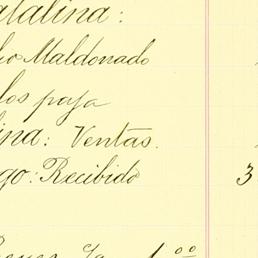 atalina:
ho Maldonado
los paja
lina: Ventas.
go: Recibido 3
1.00